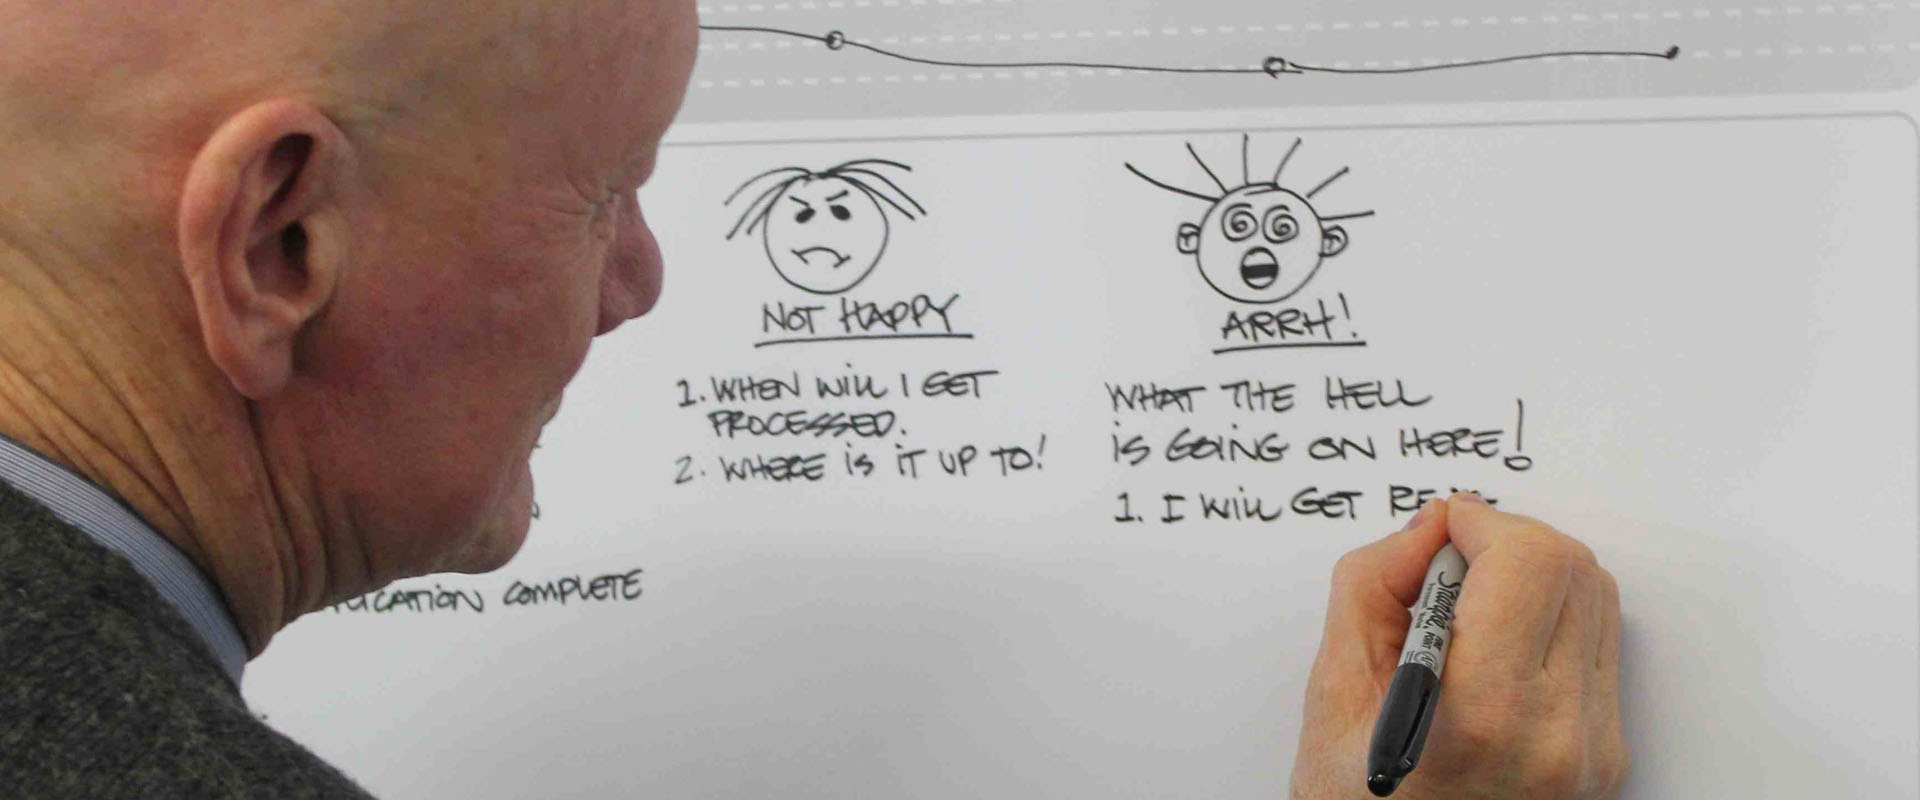 NOT HAPPY
1. WHEN WILL I GET
PROCESSED.
2. WHERE IS IT UP TO!
ARRH!
WHAT THE HELL
IS GOING ON HERE!
1. I WILL GET
COMPLETE
Sharpie